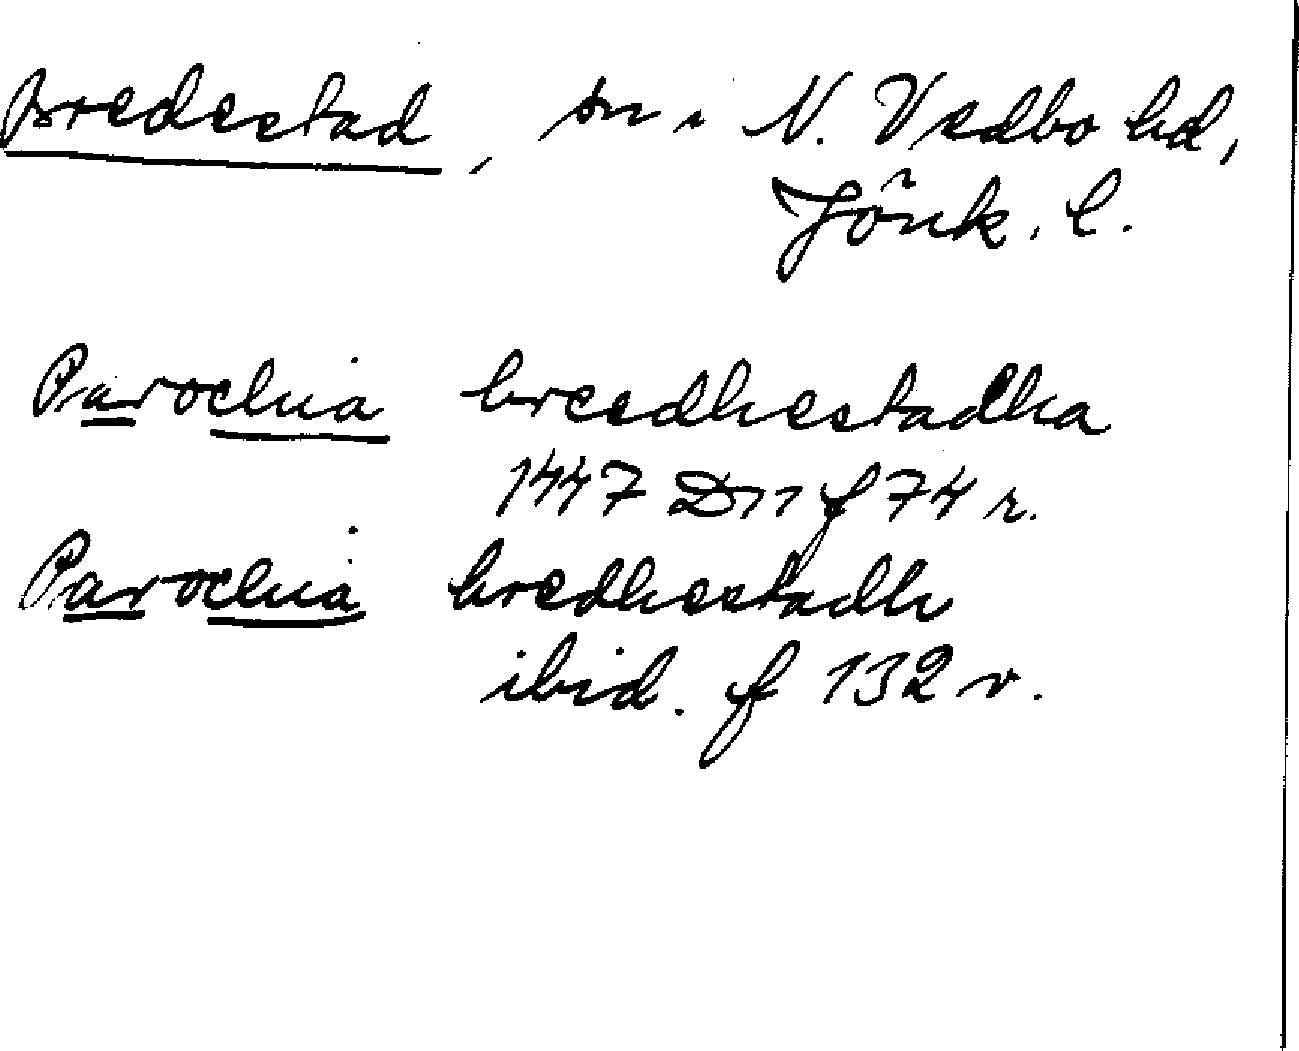 Bredestad, sn i N. Vedbo hd,
Jönk. l.
Parochia breedhestadha
1447 D11 f 74 r.
Parochia bredhestadh
ibid. f 132 v.